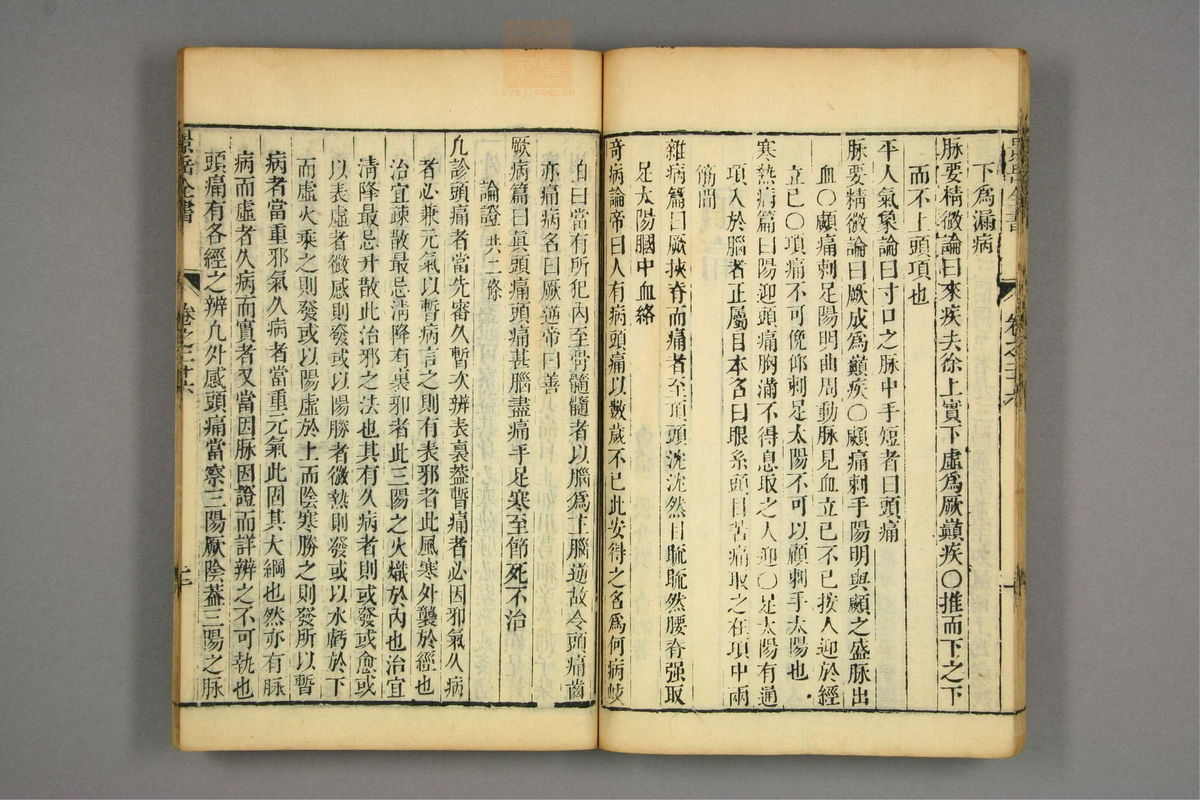 下爲漏病
脉要精微論曰來疾去徐上實下虛爲厥巔疾〇推而下之下
而不上頭項也
平人氣象論曰寸口之脉中手短者曰頭痛
脉要精微論曰厥成爲巔疾〇顑痛刺手陽明與顑之盛脉出
血〇顑痛刺足陽明曲周動脉見血立已不已按人迎於經
立已〇項痛不可俛仰刺足太陽不可以顧刺手太陽也
寒熱病篇曰陽迎頭痛胸滿不得息取之人迎〇足太陽有通
項入於腦者正屬目本名曰眼系頭目苦痛取之在項中兩
筋間
雜病篇曰厥挾脊而痛者至頂頭沈沈然目䀮䀮然腰脊强取
足太陽膕中血絡
奇病論帝曰人有病頭痛以數歲不已此安得之名爲何病岐
伯曰當有所犯大寒內至骨髓髓者以腦爲主腦逆故令頭痛齒
亦痛病名曰厥逆帝曰善
厥病篇曰眞頭痛頭痛甚腦盡痛手足寒至節死不治
論證 共二條
凡診頭痛者當先審久暫次辨表裏葢暫痛者必因邪氣久病
者必兼元氣以暫病言之則有表邪者此風寒外襲於經也
治宜疎散最忌淸降有裏邪者此三陽之火熾於內也治宜
淸降最忌升散此治邪之法也其有久病者則或發或愈或
以表虛者微感則發或以陽勝者微熱則發或以水虧於下
而虛火乘之則發或以陽虛於上而陰寒勝之則發所以暫
病者當重邪氣久病者當重元氣此固其大綱也然亦有脉
病而虛者久病而實者又當因脉因證而詳辨之不可執也
頭痛有各經之辨凡外感頭痛當察三陽厥陰葢三陽之脉
景岳全書
卷之二十六